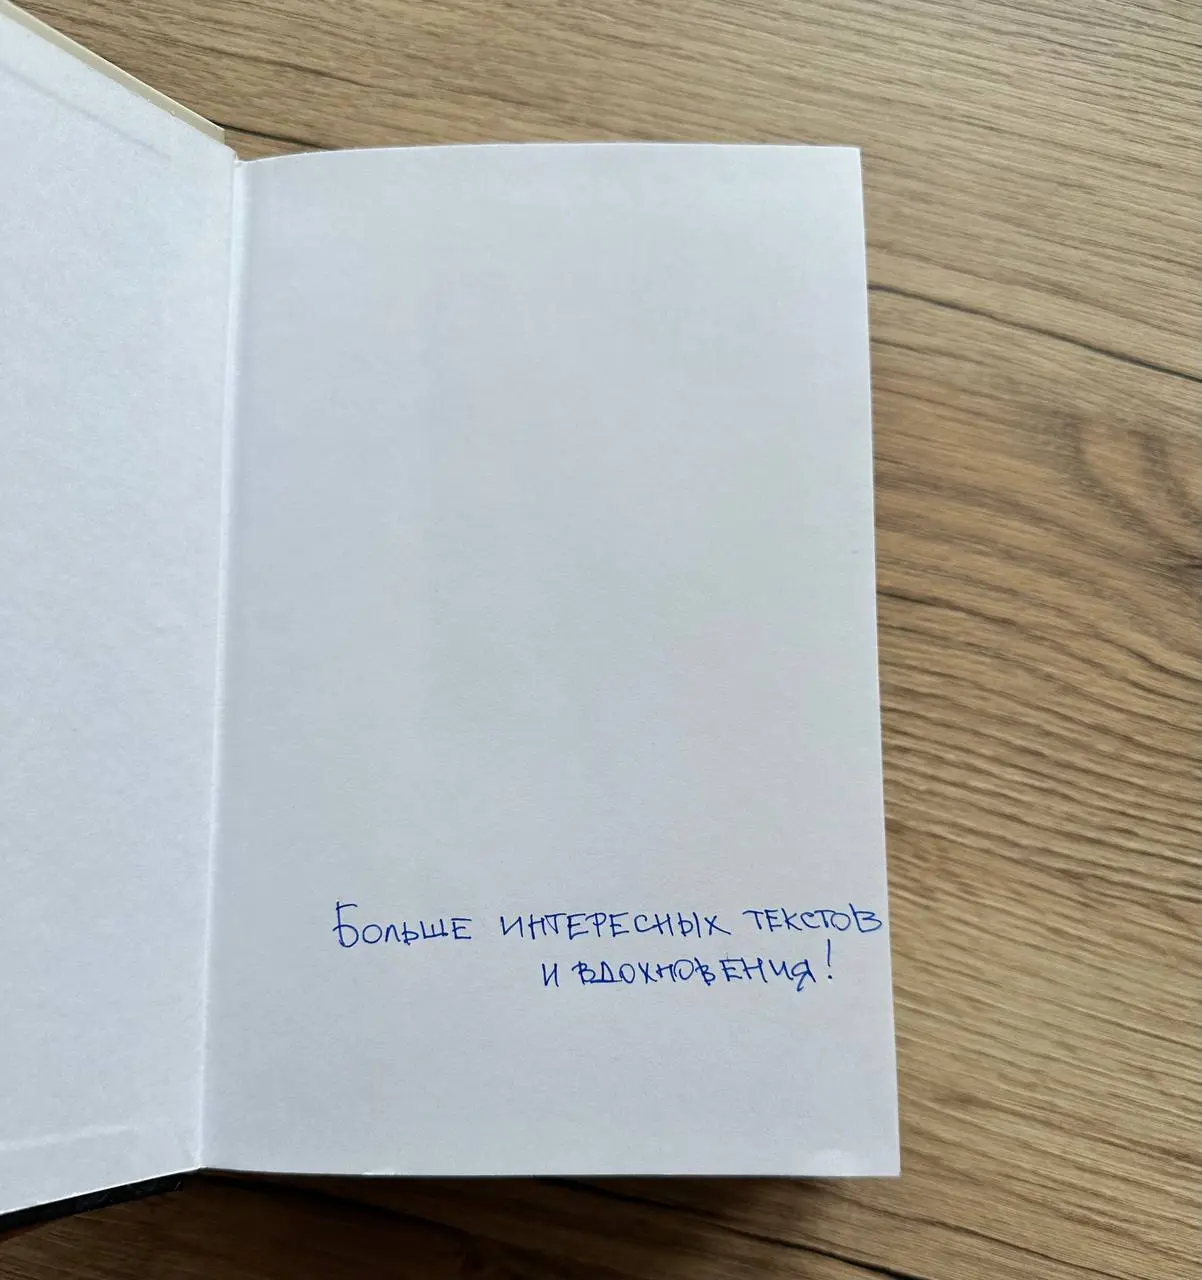 Больше интересных текстов
и вдохновения!